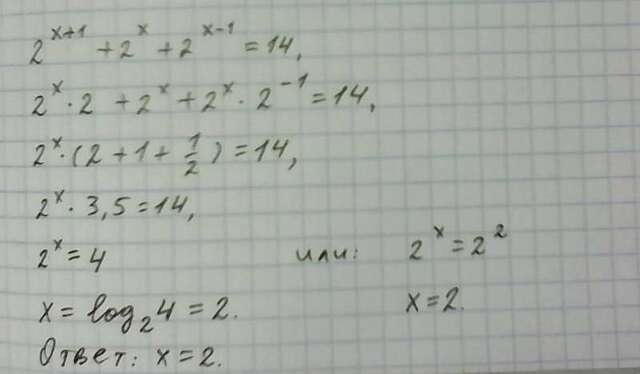 2^{x+1} + 2^x + 2^{x-1} = 14,
2^x · 2 + 2^x + 2^x · 2^{-1} = 14,
2^x · (2 + 1 + \frac{1}{2}) = 14,
2^x · 3,5 = 14,
2^x = 4 или: 2^x = 2^2
x = log_2 4 = 2. x = 2.
Ответ: x = 2.